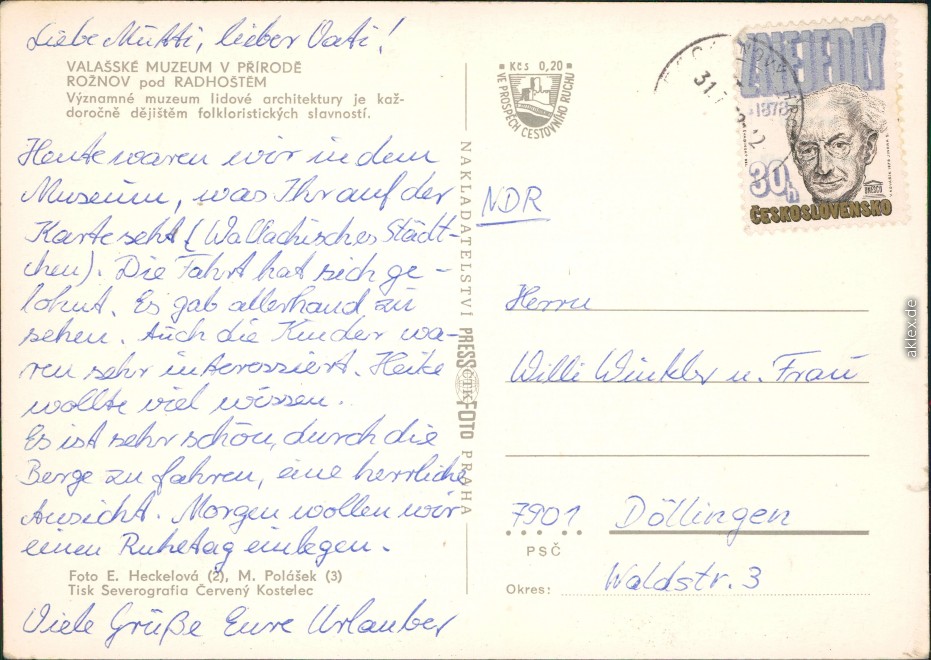 Liebe Mutti, lieber Vati!
VALAŠSKÉ MUZEUM V PŘÍRODĚ
ROŽNOV pod RADHOŠTĚM
Významné muzeum lidové architektury je kaž-
doročně dějištěm folkloristických slavností.
Heute waren wir in dem
Museum, was Ihr auf der
Karte seht (Wallachisches Städt-
chen). Die Fahrt hat sich ge-
lohnt. Es gab allerhand zu
sehen. Auch die Kinder wa-
ren sehr interessiert. Heike
wollte viel wissen.
Es ist sehr schön, durch die
Berge zu fahren, eine herrliche
Ansicht. Morgen wollen wir
einen Ruhetag einlegen.
Foto E. Heckelová (2), M. Polášek (3)
Tisk Severografia Červený Kostelec
Viele Grüße Eure Urlauber
NAKLADATELSTVÍ PRESSFOTO PRAHA
ČTK
Kčs 0,20
VE PROSPĚCH CESTOVNÍHO RUCHU
Z.NEJEDLÝ
1878
30h
UNESCO
ČESKOSLOVENSKO
31.7
12
NDR
Herrn
Willi Winkler u. Frau
7901 Döllingen
PSČ
Okres: Waldstr. 3
aklex.de